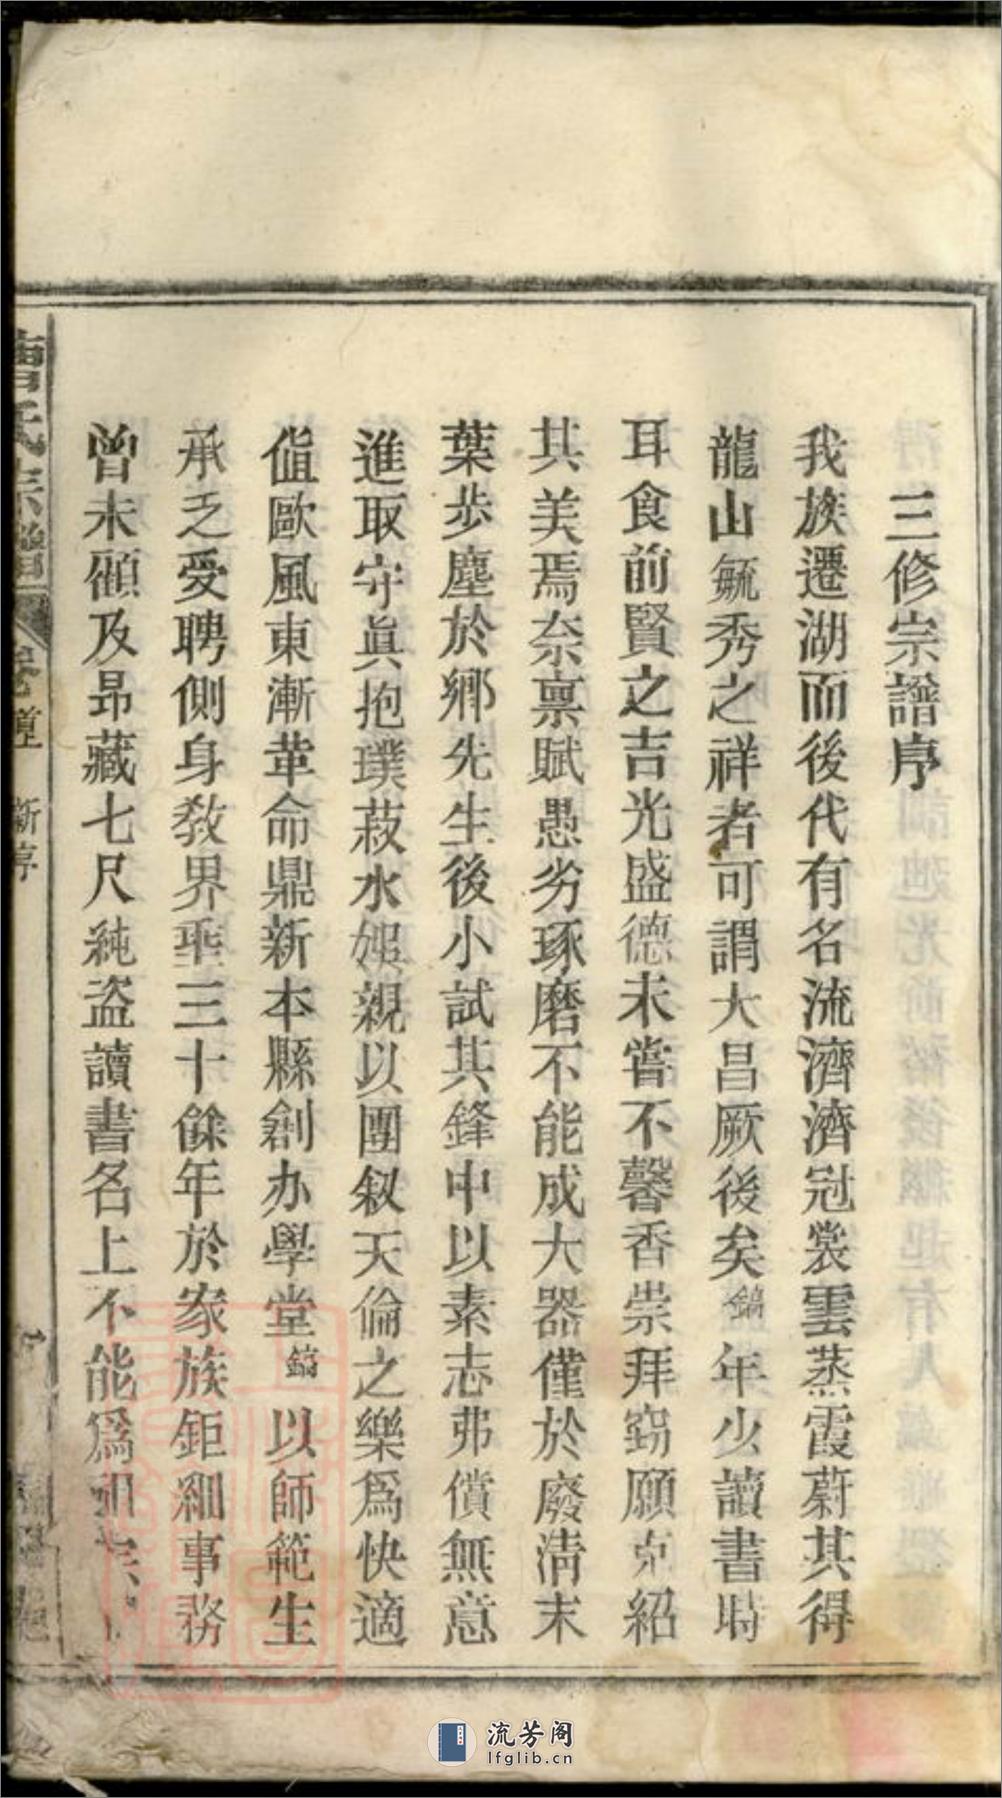 三修宗譜序
我族遷湖而後代有名流濟濟冠裳雲蒸霞蔚其得
龍山毓秀之祥者可謂大昌厥後矣鎬年少讀書時
耳食前賢之吉光盛德未嘗不馨香崇拜竊願克紹
其美焉奈禀賦愚劣琢磨不能成大器僅於廢淸末
葉步塵於鄉先生後小試其鋒中以素志弗償無意
進取守眞抱璞菽水娛親以團叙天倫之樂爲快適
値歐風東漸革命鼎新本縣創办學堂鎬以師範生
承乏受聘側身敎界垂三十餘年於家族鉅細事務
曾未顧及昂藏七尺純盜讀書名上不能爲祖宗
新序
流芳阁
lfglib.cn